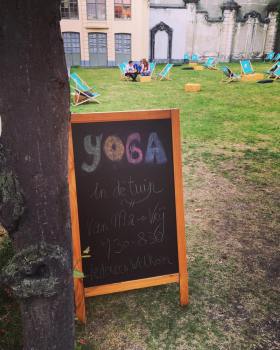 YOGA
In de tuin
Van Ma → Vrij
730-830
Iedereen Welkom